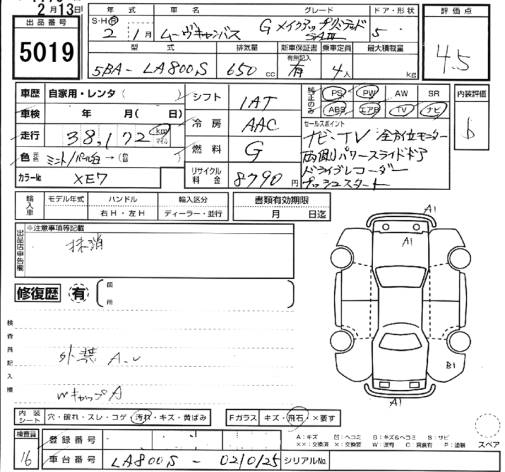 2月13日
出品番号
5019
年式 車名 グレード ドア・形状
S・H・R 2年 1月 ムーヴキャンバス G メイクアップリミテッド SAIII 5
型式 排気量 新車保証書 乗車定員 最大積載量
5BA-LA800S 650cc 有無記入 有 4人 kg
評価点
4.5
内装評価
b
車歴 自家用・レンタ( )
車検 年 月( 日)
走行 38,172 km マイル
色 元色 ミント/パール白 → (替色 )
カラーNo XE7
シフト 1AT
冷房 AAC
燃料 G
リサイクル料金 8790円
純正のみ PS PW AW SR
ABS エアB TV ナビ
セールスポイント
ナビ・TV 全方位モニター
両側パワースライドドア
ドライブレコーダー
プッシュスタート
輸入車 モデル年式 ハンドル 輸入区分 書類有効期限
右H・左H ディーラー・並行 月 日迄
出品店申告欄
※注意事項等記載
抹消
修復歴 有
検査員記入欄
外装 A-U
WキャップA
A1
A1
B1
A1
内装シート 穴・破れ・スレ・コゲ・汚れ・キズ・黄ばみ Fガラス キズ・飛石・×要す
検査員
16
登録番号
車台番号 LA800S-0210125 シリアルNo.
A:キズ B:キズ&ヘコミ S:サビ
スペア